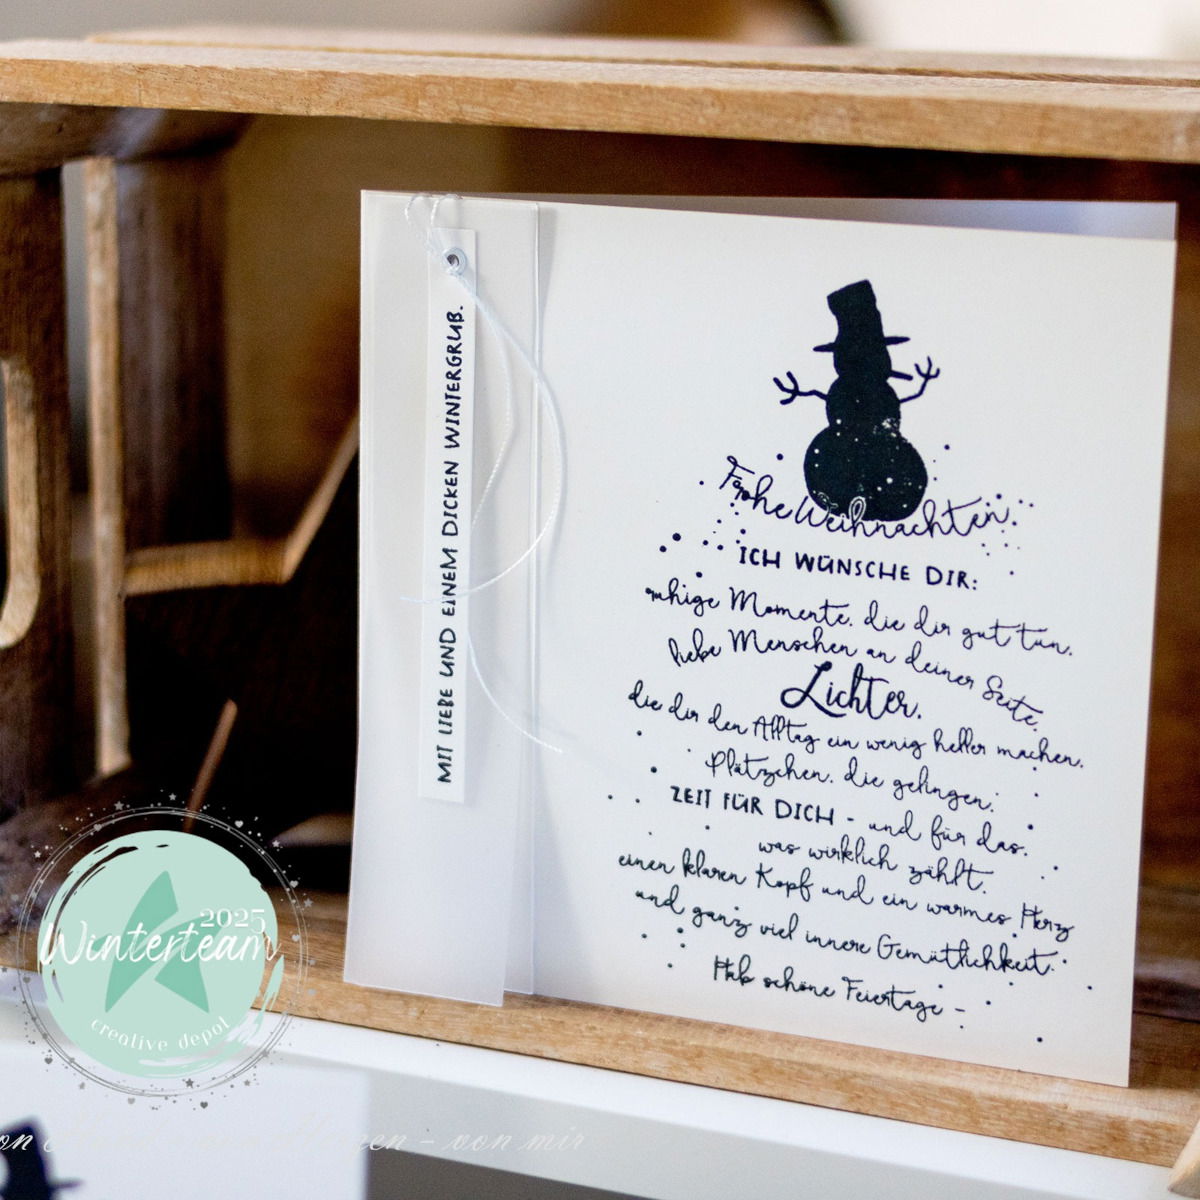 MIT LIEBE UND EINEM DICKEN WINTERGRUß.
Frohe Weihnachten.
ICH WÜNSCHE DIR:
ruhige Momente. die dir gut tun.
liebe Menschen an deiner Seite.
Lichter.
die dir den Alltag ein wenig heller machen.
Plätzchen. die gelingen.
ZEIT FÜR DICH - und für das.
was wirklich zählt.
einen klaren Kopf und ein warmes Herz
und ganz viel innere Gemütlichkeit.
Hab schöne Feiertage -
2025
Winterteam
creative depot
- von mir